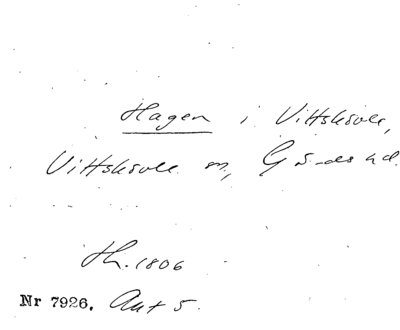 Hagen i Vittskövle,
Vittskövle sn, Gärds hd.
Th. 1806
Nr 7926. Ant 5.